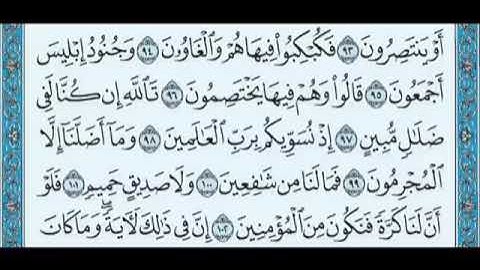 أَوْ يَنتَصِرُونَ ٩٣ فَكُبْكِبُوا۟ فِيهَا هُمْ وَٱلْغَاوُۥنَ ٩٤ وَجُنُودُ إِبْلِيسَ
أَجْمَعُونَ ٩٥ قَالُوا۟ وَهُمْ فِيهَا يَخْتَصِمُونَ ٩٦ تَٱللَّهِ إِن كُنَّا لَفِى
ضَلَٰلٍ مُّبِينٍ ٩٧ إِذْ نُسَوِّيكُم بِرَبِّ ٱلْعَٰلَمِينَ ٩٨ وَمَآ أَضَلَّنَآ إِلَّا
ٱلْمُجْرِمُونَ ٩٩ فَمَا لَنَا مِن شَٰفِعِينَ ١٠٠ وَلَا صَدِيقٍ حَمِيمٍ ١٠١ فَلَوْ
أَنَّ لَنَا كَرَّةً فَنَكُونَ مِنَ ٱلْمُؤْمِنِينَ ١٠٢ إِنَّ فِى ذَٰلِكَ لَءَايَةً ۖ وَمَا كَانَ